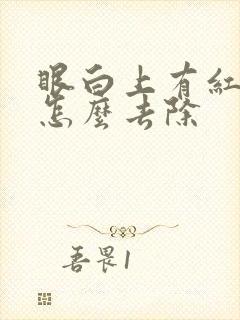 眼白上有紅
怎麼去除
善畏1